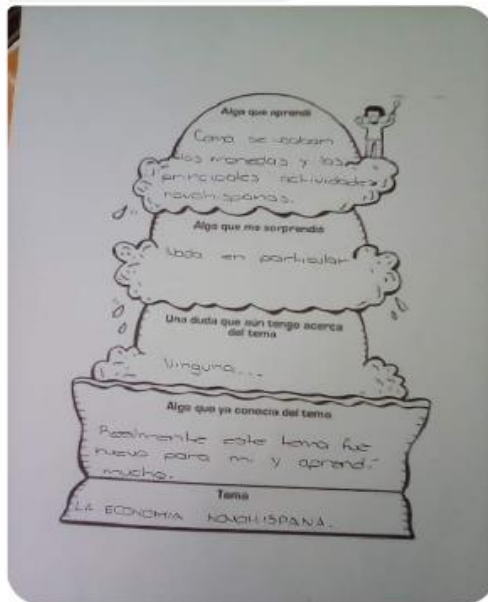 Algo que aprendí
Como se usaban
las monedas y las
principales actividades
novohispanas.
Algo que me sorprendió
Nada en particular
Una duda que aún tengo acerca
del tema
Ninguna...
Algo que ya conocía del tema
Realmente este tema fue
nuevo para mi y aprendí
mucho.
Tema
LA ECONOMIA NOVOHISPANA.